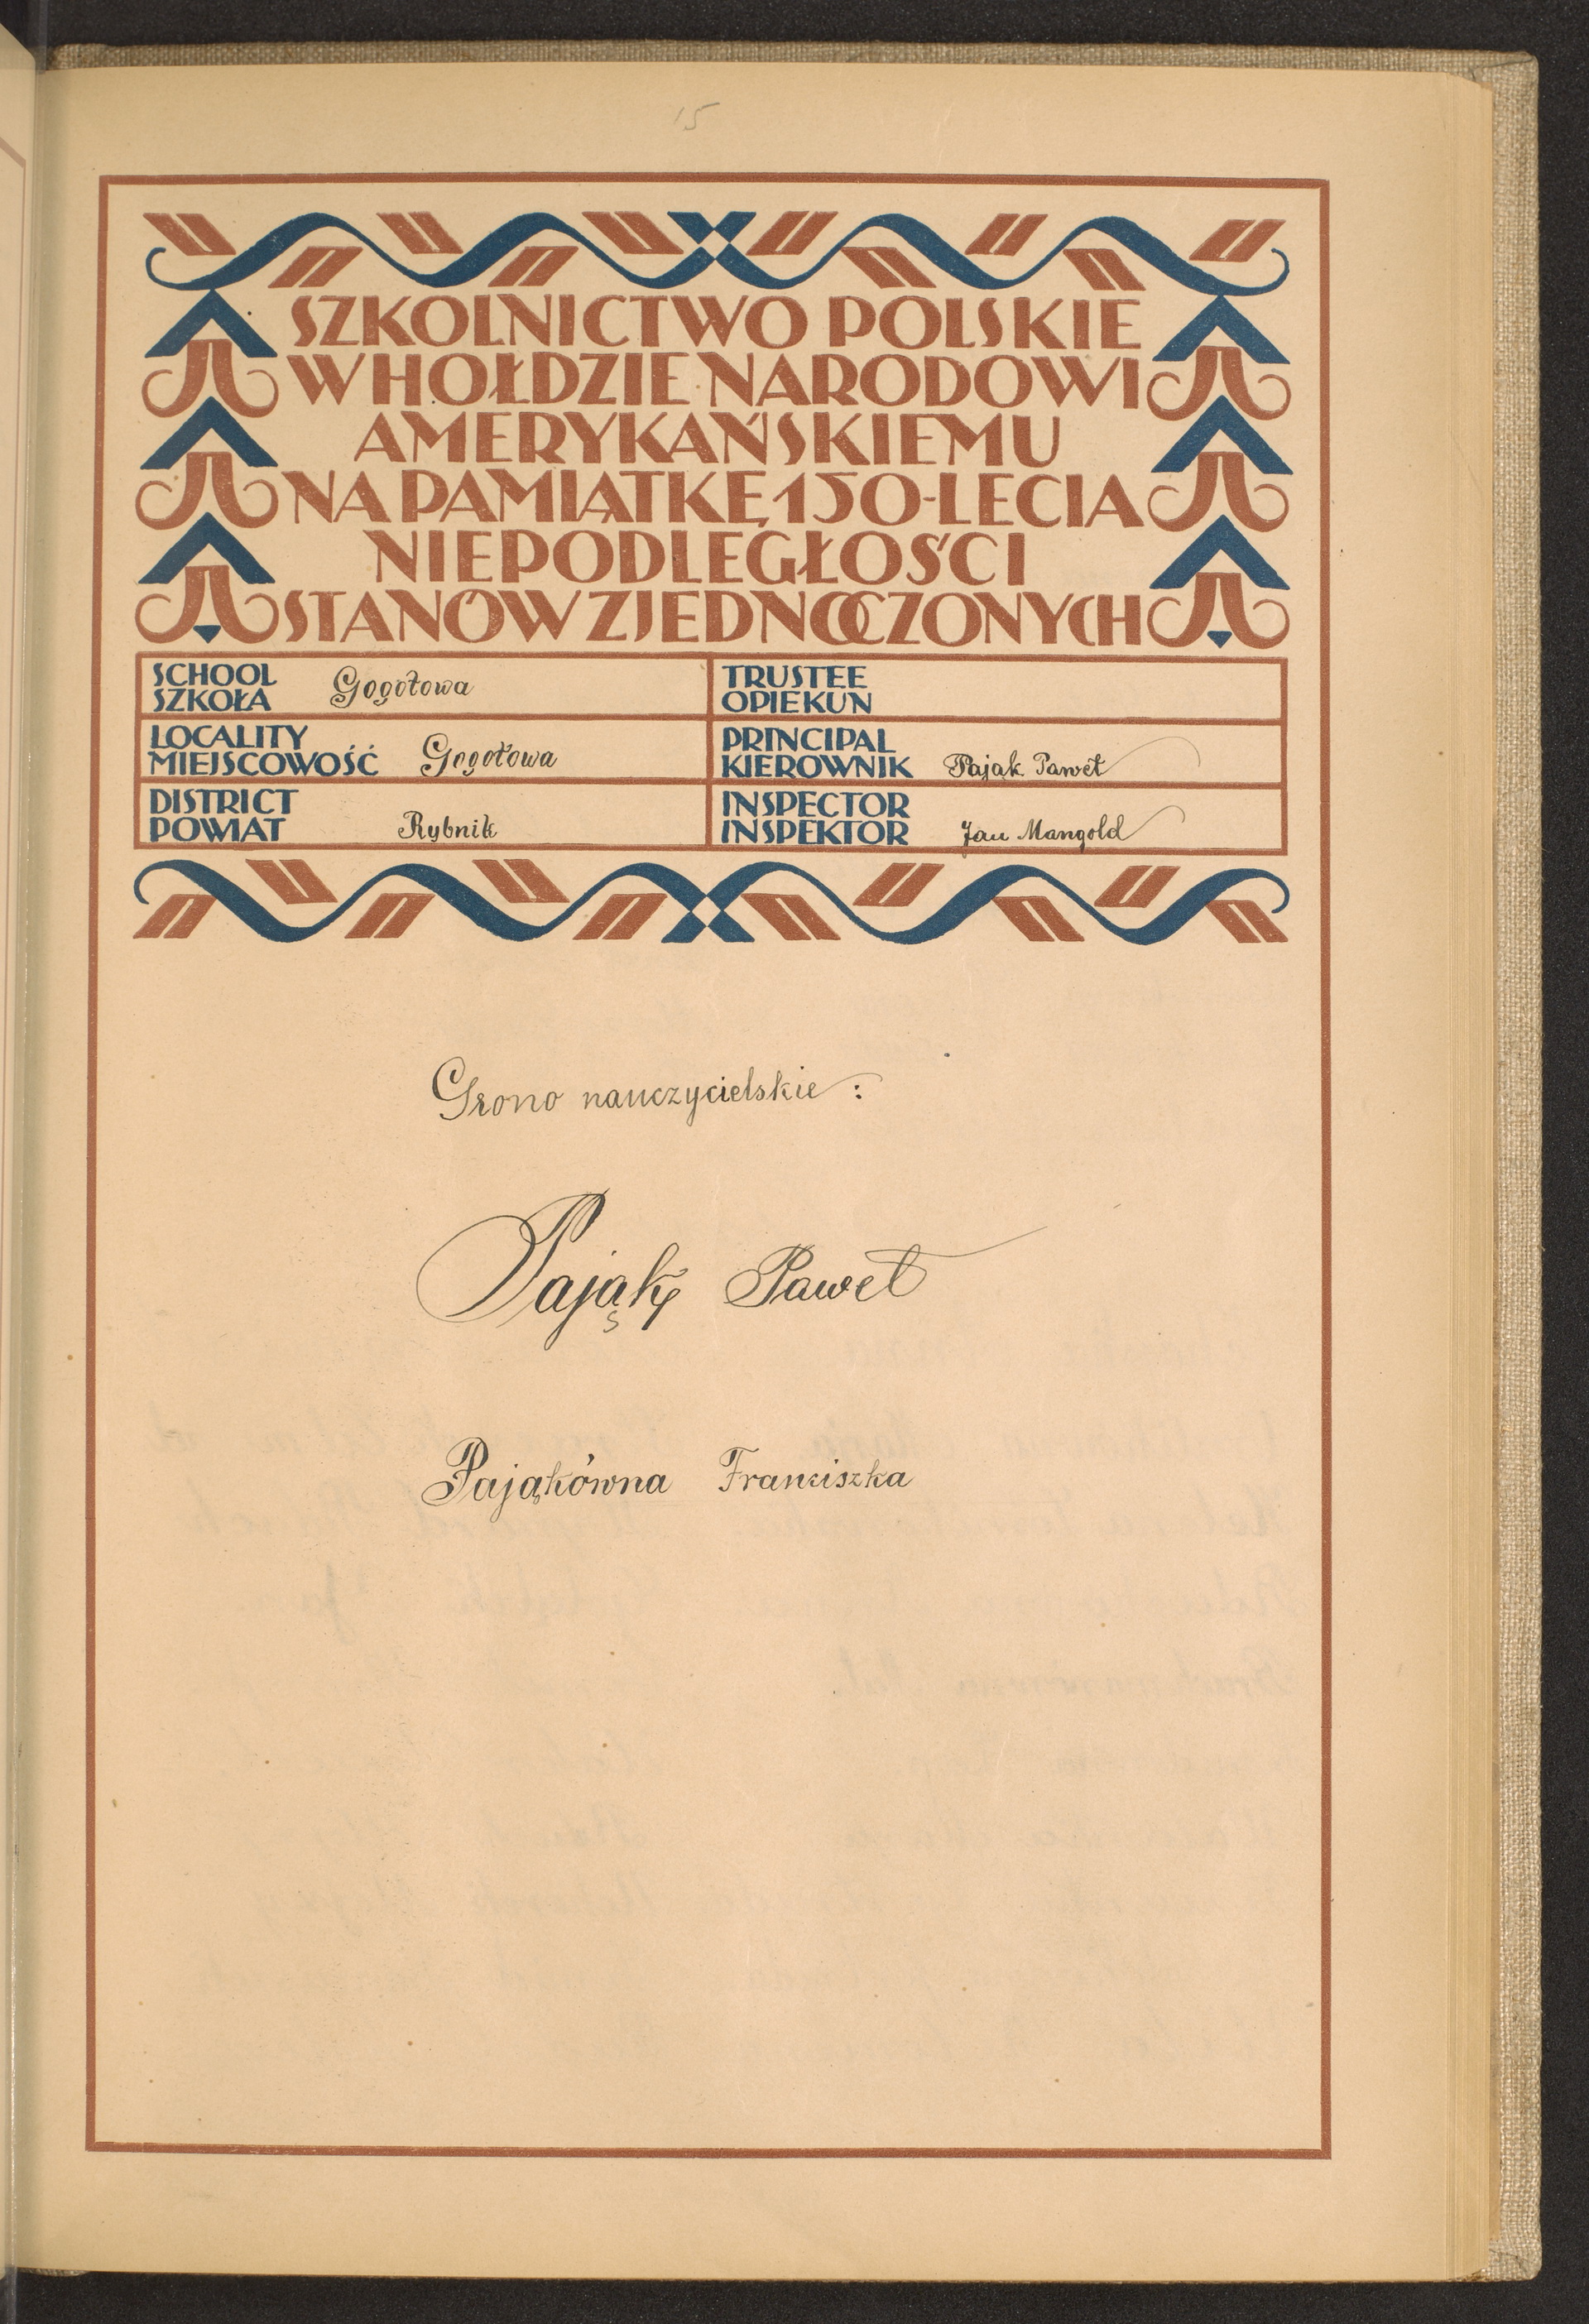 15
SZKOLNICTWO POLSKIE
W HOŁDZIE NARODOWI
AMERYKAŃSKIEMU
NA PAMIĄTKĘ 150-LECIA
NIEPODLEGŁOŚCI
STANÓW ZJEDNOCZONYCH
SCHOOL
SZKOŁA Gogołowa
TRUSTEE
OPIEKUN
LOCALITY
MIEJSCOWOŚĆ Gogołowa
PRINCIPAL
KIEROWNIK Pająk Paweł
DISTRICT
POWIAT Rybnik
INSPECTOR
INSPEKTOR Jan Mangold
Grono nauczycielskie:
Pająk Paweł
Pająkówna Franciszka